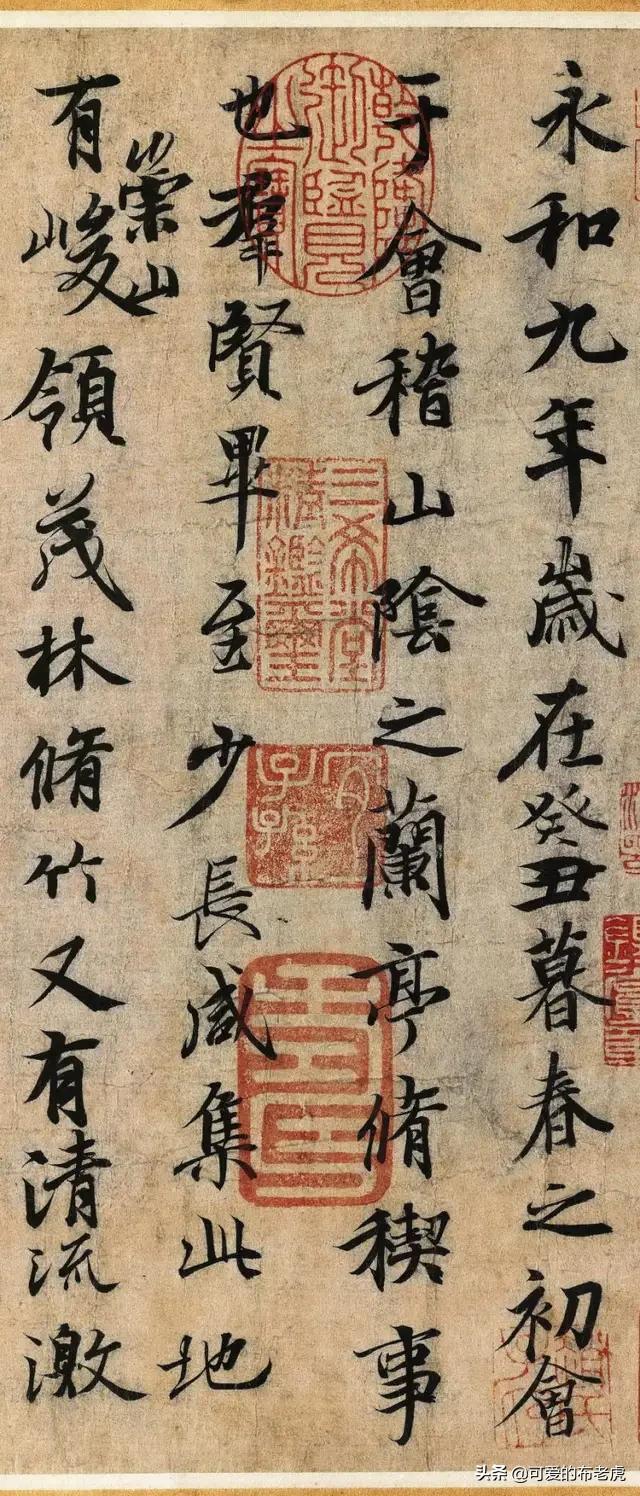 永和九年歲在癸丑暮春之初會
于會稽山陰之蘭亭脩稧事
也羣賢畢至少長咸集此地
有崇山峻領茂林脩竹又有清流激
乾隆御覽之寶
三希堂精鑑璽
宜子孫
头条 @可爱的布老虎